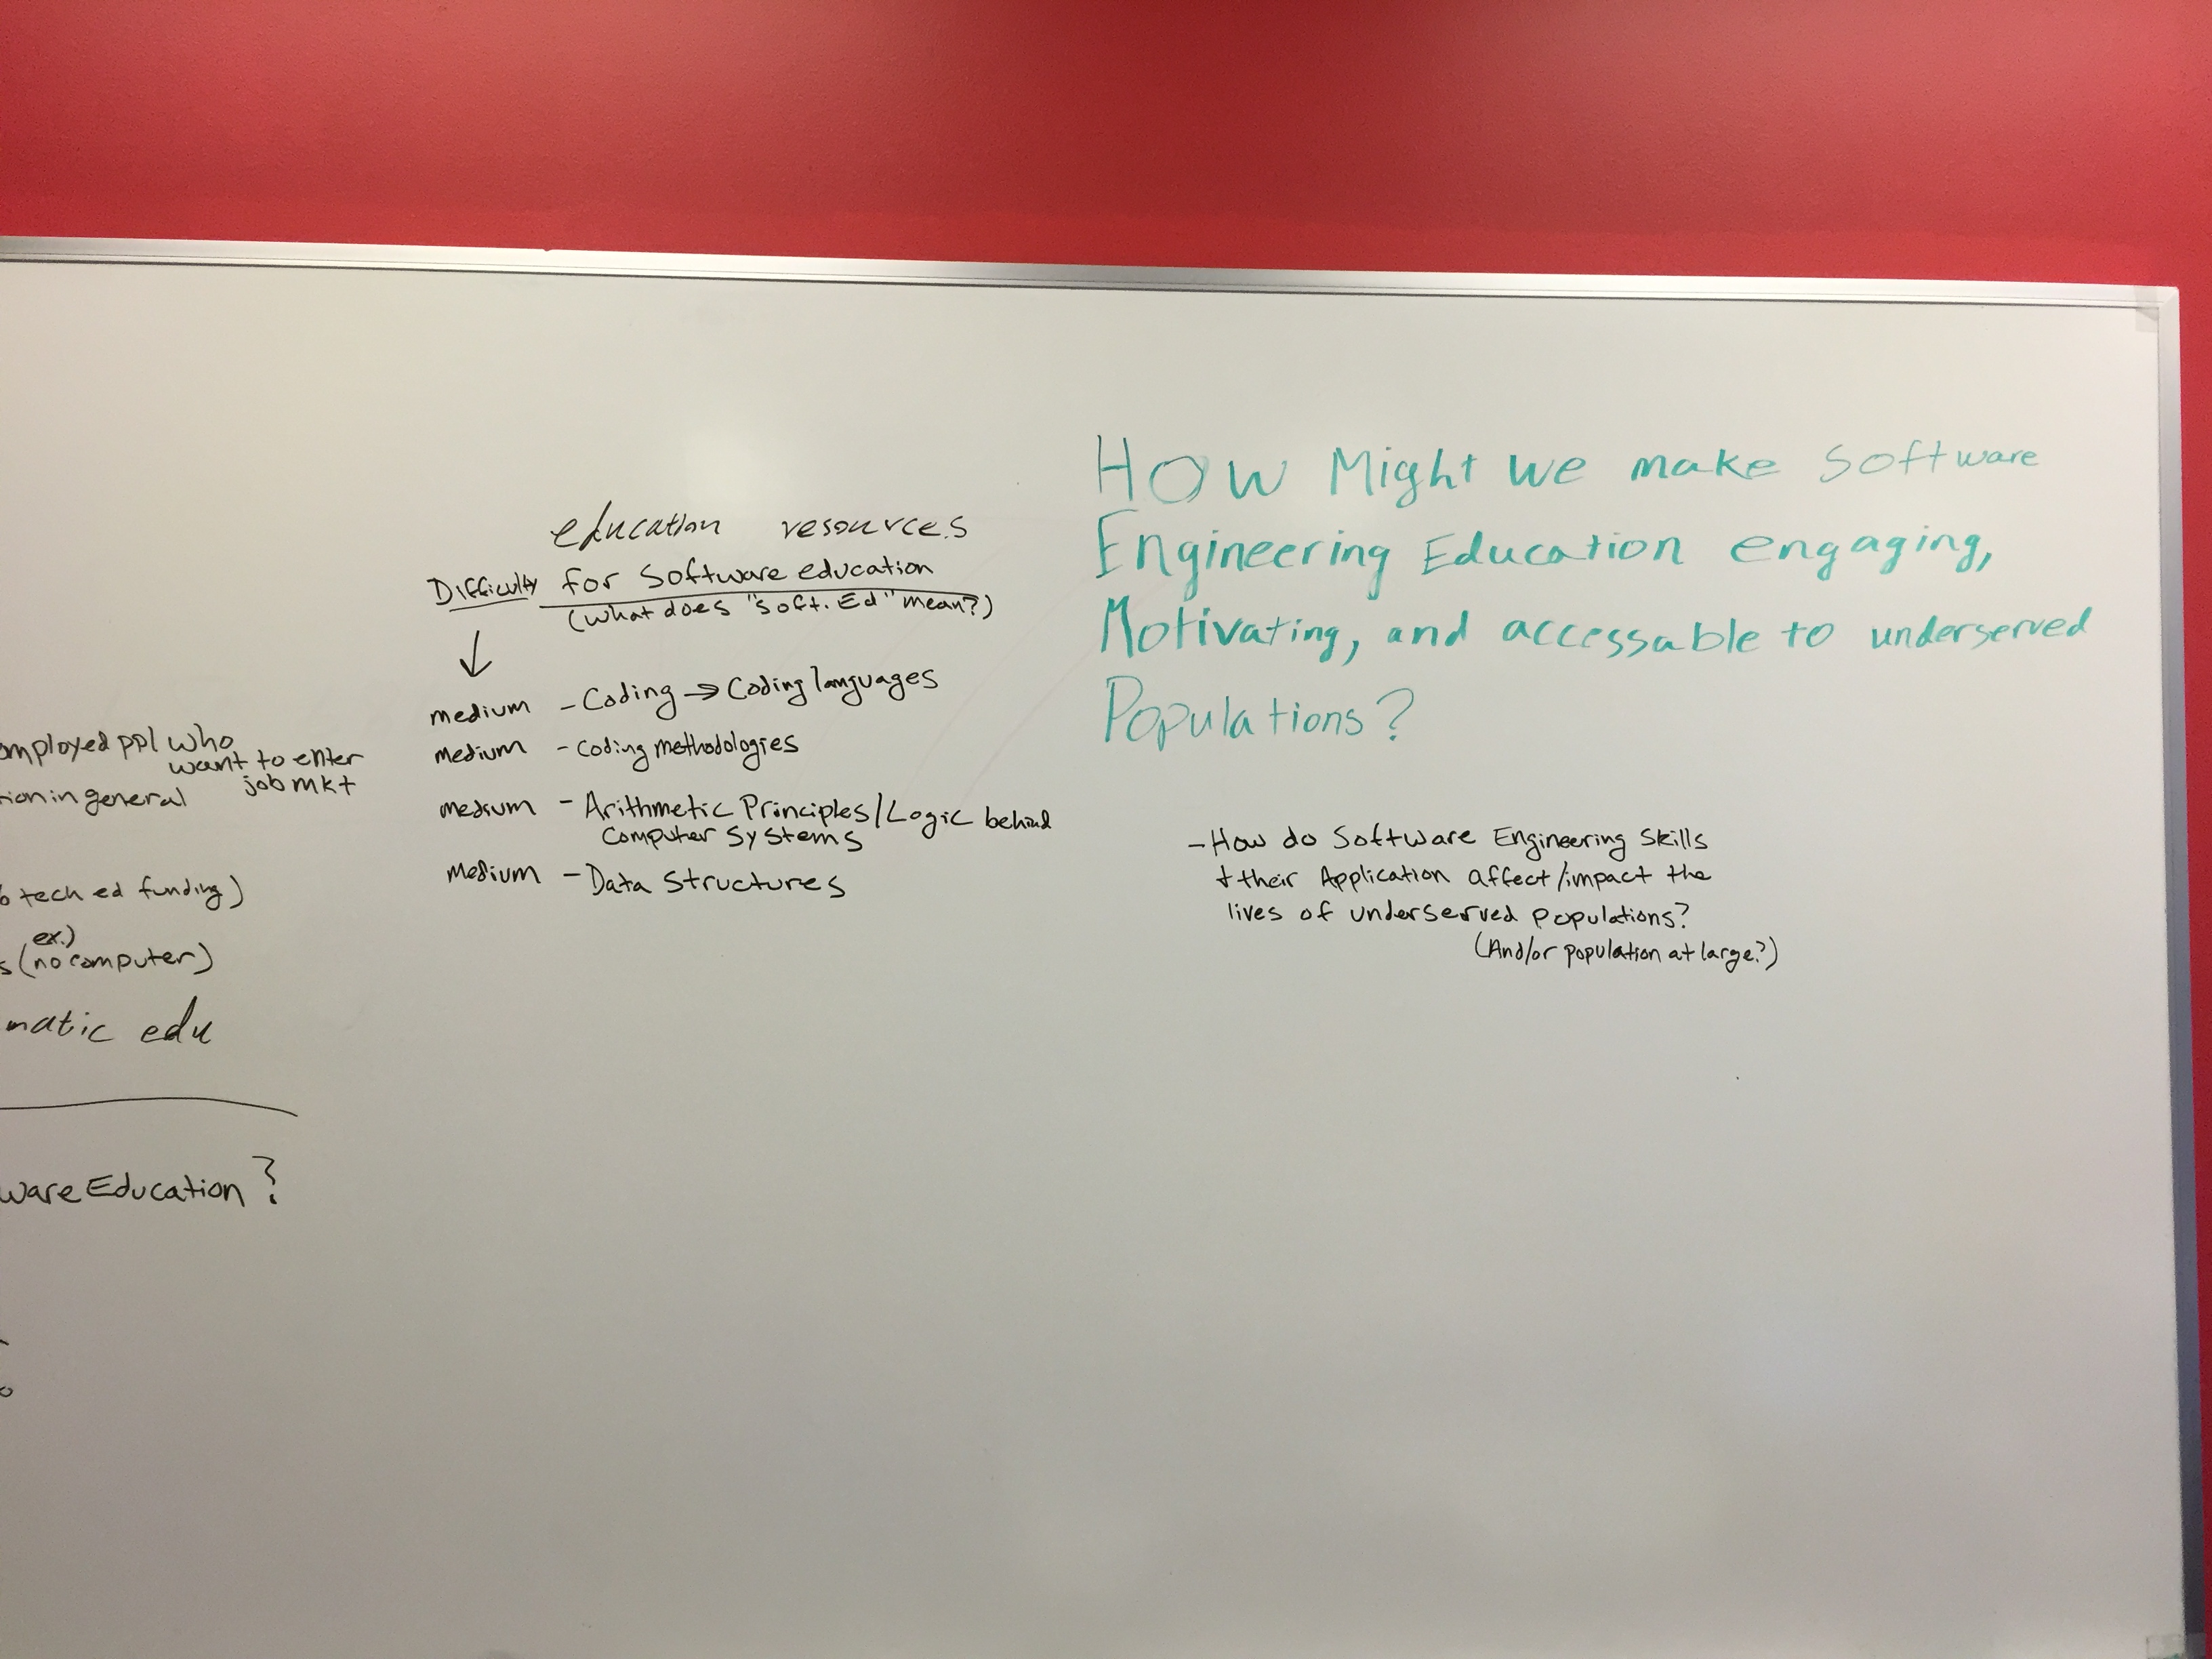 omployed ppl who
want to enter
job mkt
tion in general
tech ed funding)
ex.)
s (no computer)
matic edu
ware Education?
education resources
Difficulty for Software education
(what does "soft. Ed" mean?)
medium - Coding → Coding languages
medium - coding methodologies
medium - Arithmetic Principles/Logic behind
computer systems
Medium - Data Structures
How Might we make software
Engineering Education engaging,
Motivating, and accessable to underserved
Populations?
- How do Software Engineering Skills
+ their Application affect/impact the
lives of underserved populations?
(And/or population at large?)